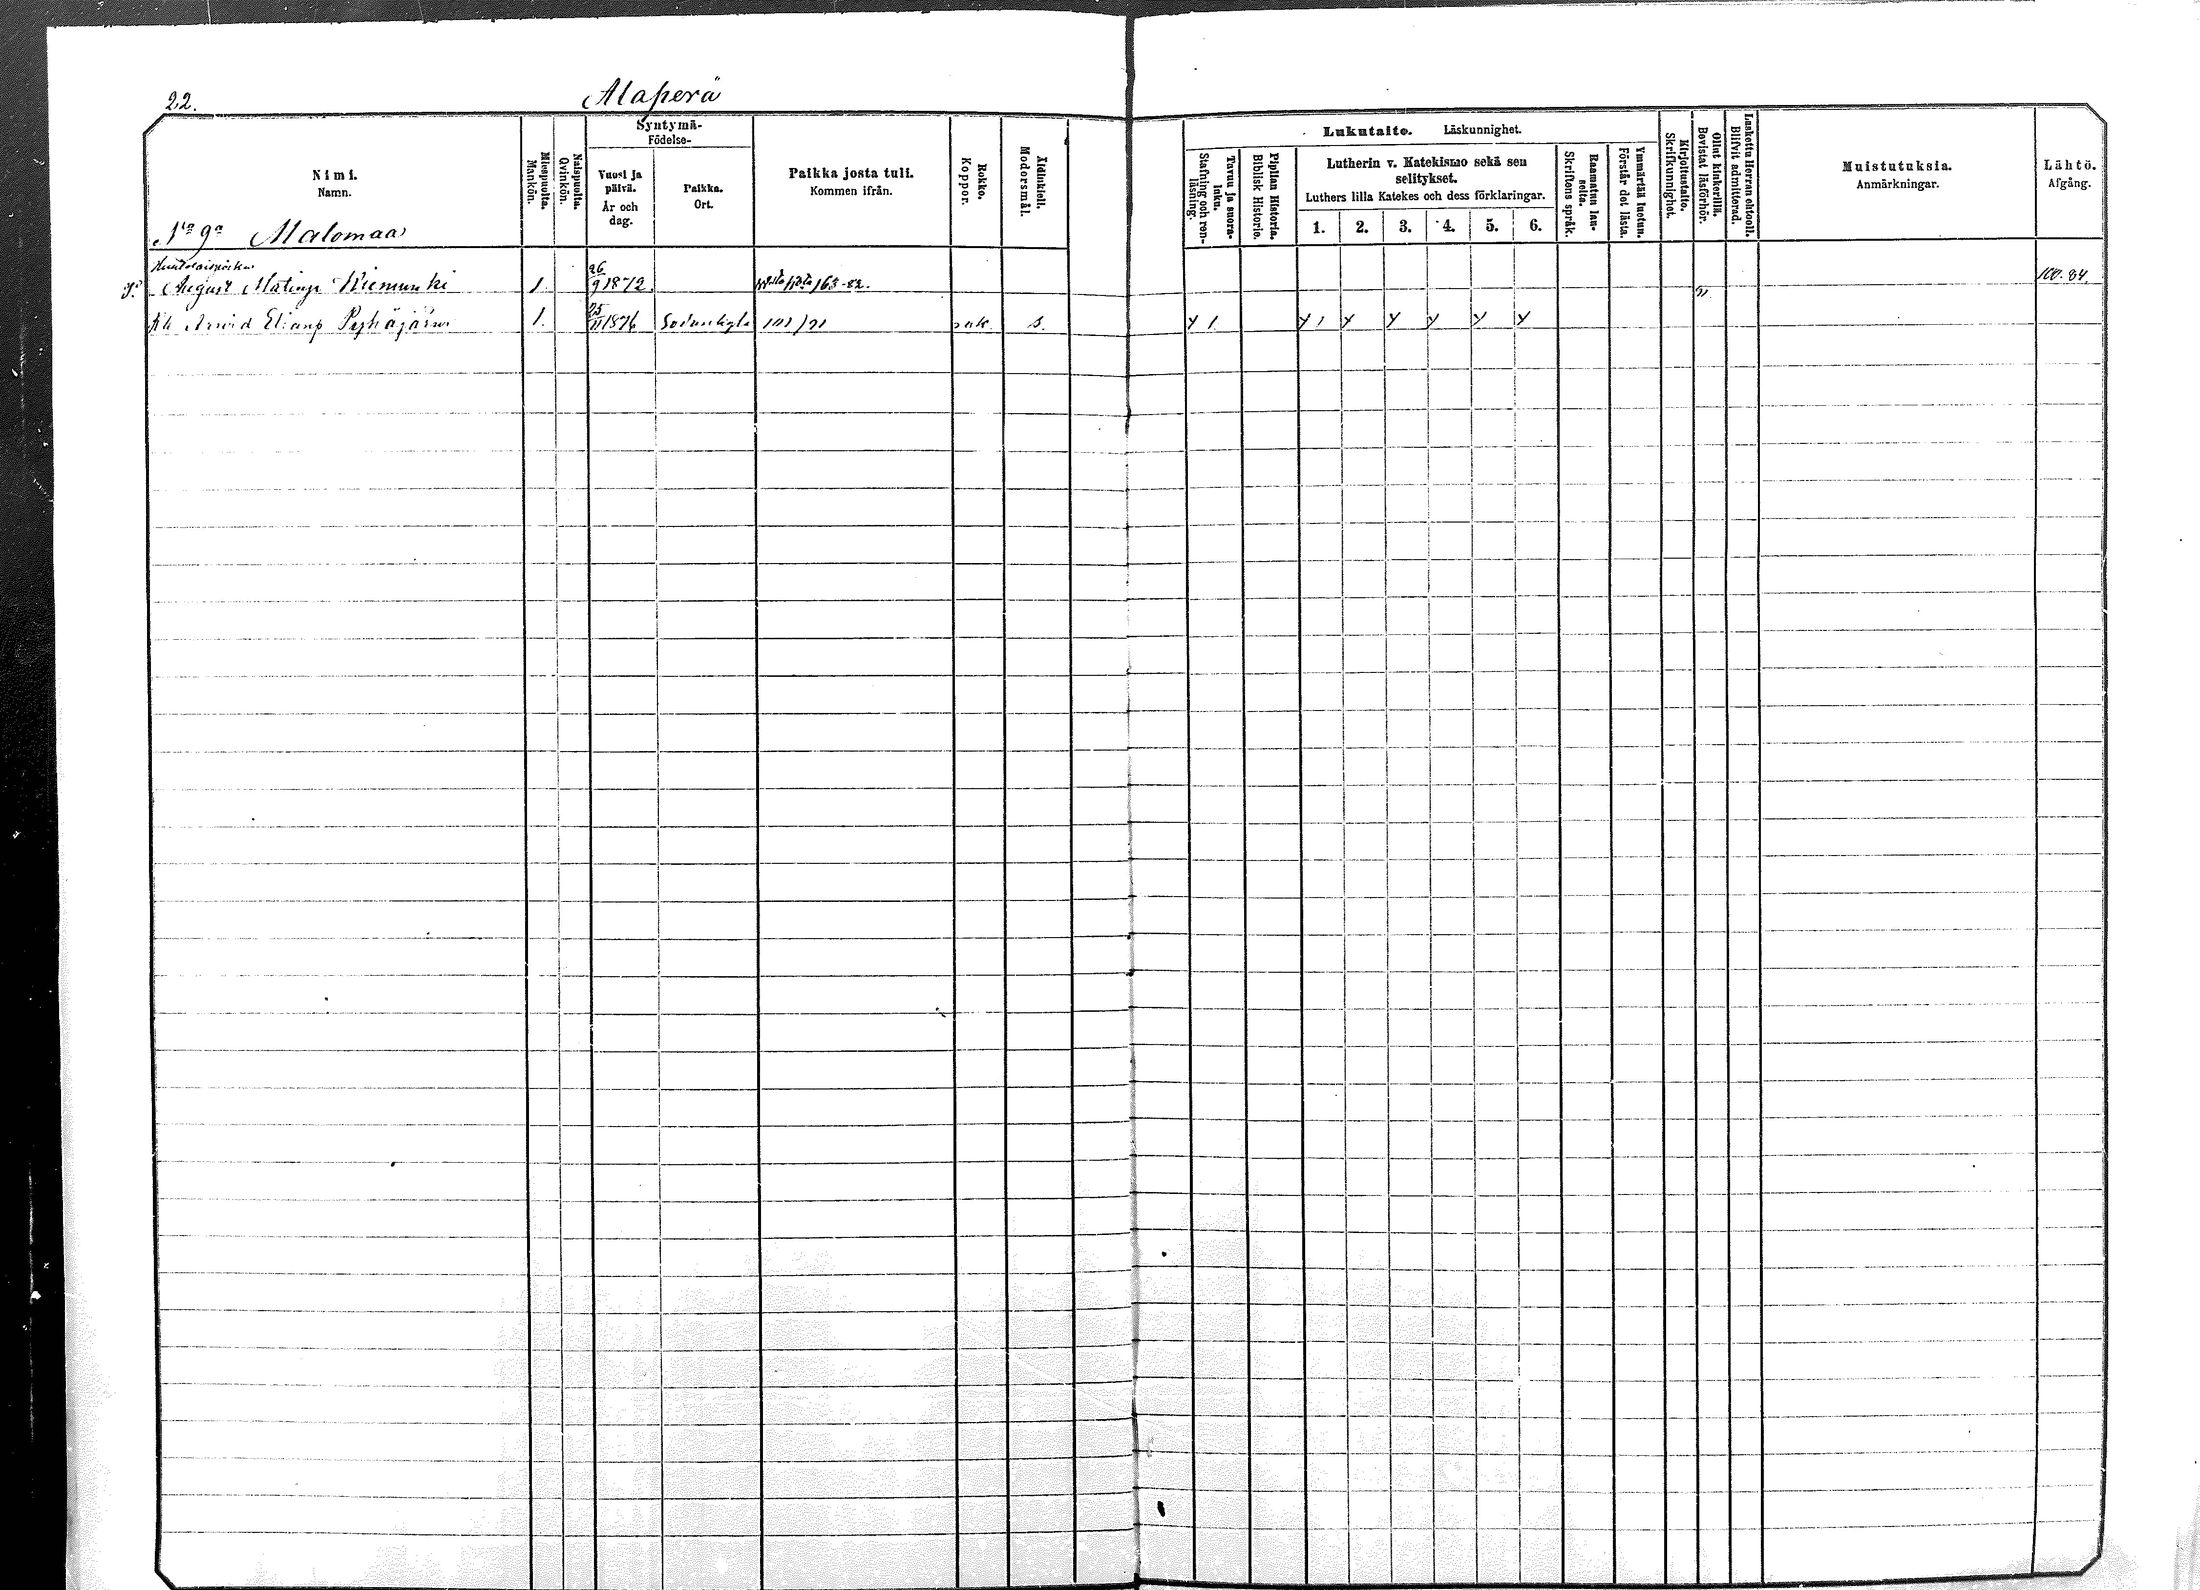 22.
Alaperä
Nimi.
Namn.
Miespuolta.
Mankön.
Naispuolta.
Qvinkön.
Syntymä-
Födelse-
Vuosi ja
päivä.
År och
dag.
Paikka.
Ort.
Paikka josta tuli.
Kommen ifrån.
Rokko.
Koppor.
Äidinkieli.
Modersmål.
Lukutaito. Läskunnighet.
Tavuu ja suora-
luku.
Stafning och ren-
läsning.
Piplian Historia.
Biblisk Historie.
Lutherin v. Katekismo sekä sen
selitykset.
Luthers lilla Katekes och dess förklaringar.
1. 2. 3. 4. 5. 6.
Raamatun lau-
seita.
Skriftens språk.
Ymmärtää luetun.
Förstår det lästa.
Kirjoitustaito.
Skrifkunnighet.
Ollut kinkerillä.
Bevistat läsförhör.
Laskettu Herran ehtooll.
Blifvit admitterad.
Muistutuksia.
Anmärkningar.
Lähtö.
Afgång.
No 9a Malomaa
August Matinp. Niemunki 1. 26/9 1872 163-82. 100.84.
Arvid Elianp Pyhäjärvi 1. 25/11 1876 Sodankylä 101/91 rok s. Y 1 Y 1 Y Y Y Y Y